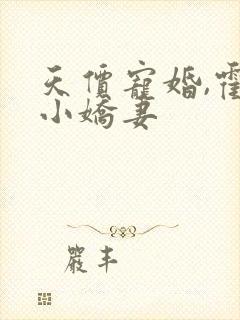 天價寵婚,霍
小嬌妻
嚴丰